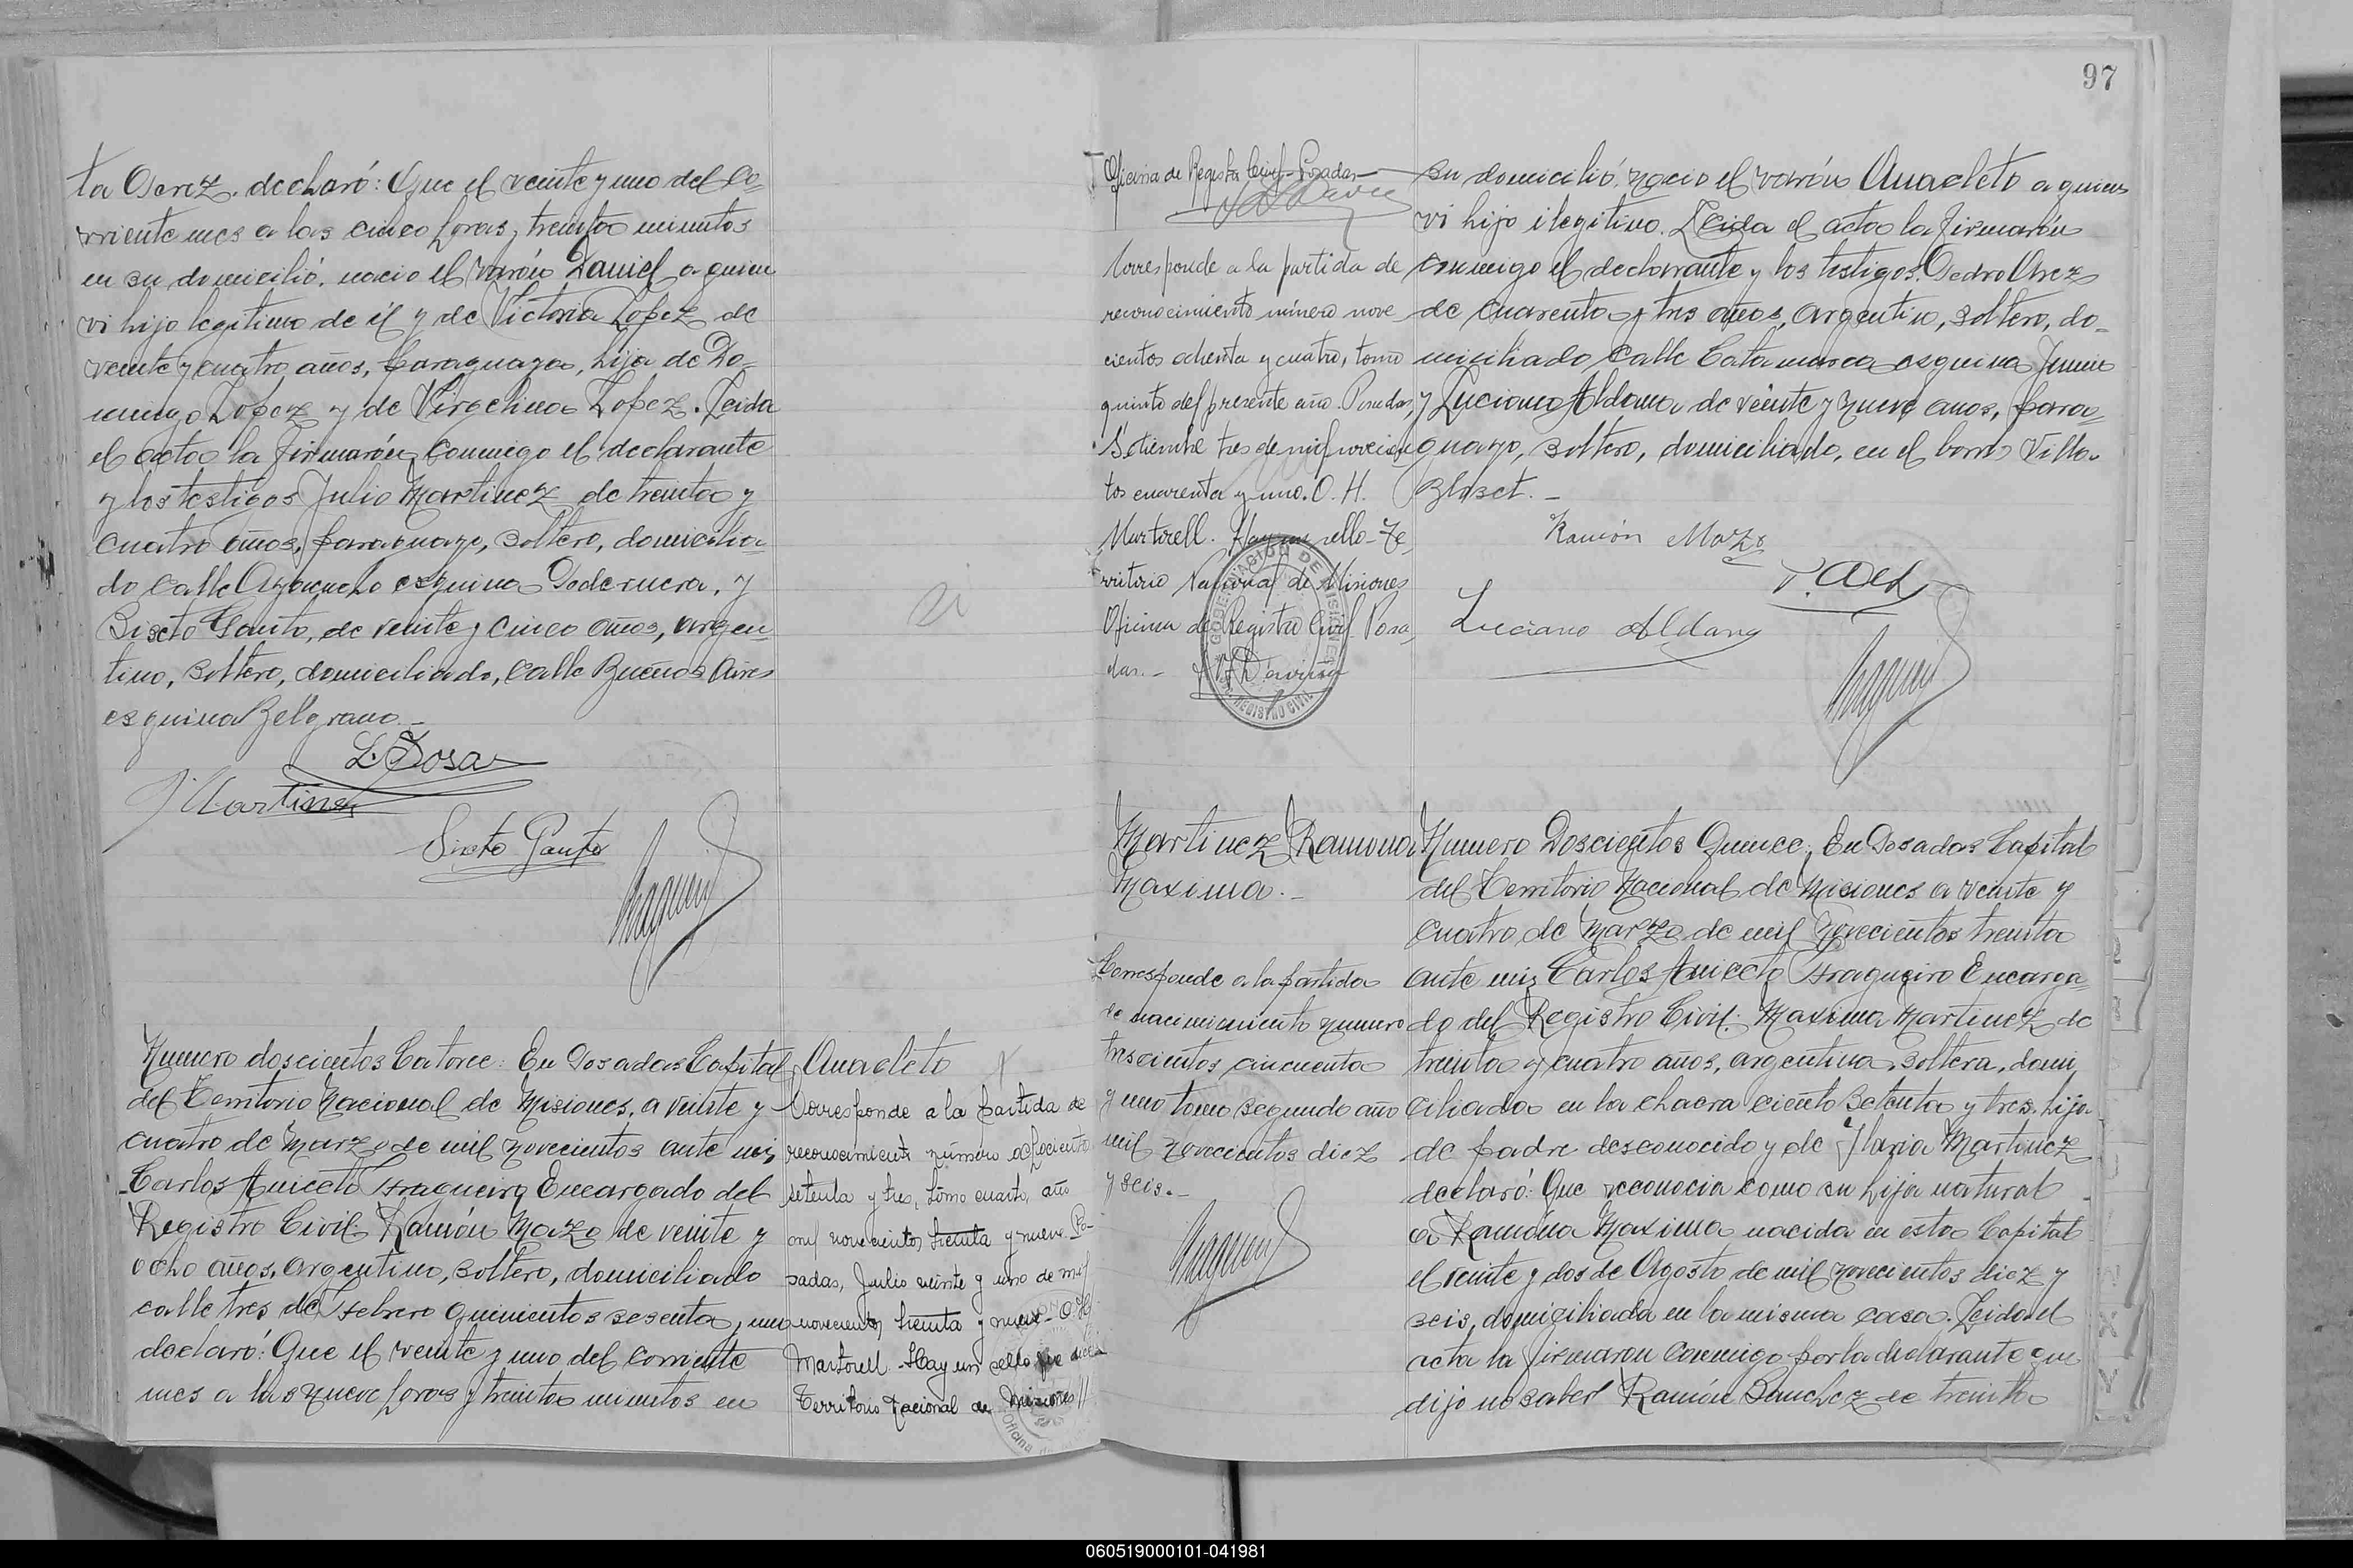 ta Perez. declaró: Que el veinte y uno del co-
rriente mes a las cinco horas y treinta minutos
en su domicilió. nacio el varón Daniel a quien
vi hijo legitimo de él y de Victoria Lopez de
veinte y cuatro años, paraguaya, hija de Do-
mingo Lopez y de Virgelina Lopez. Leida
el acta la firmarón conmigo el declarante
y los testigos Julio Martinez de treinta y
cuatro años, paraguayo, soltero, domicilia-
do calle Ayacucho esquina Padernera, y
Sixto Gauto, de veinte y cinco años, argen-
tino, soltero, domiciliado, calle Buenos Aires
esquina Belgrano.-
L. Sosa
J Martinez
Sixto Gauto
Numero doscientos Catorce: En Posadas Capital
del Territorio Nacional de Misiones, a veinte y
cuatro de Marzo de mil novecientos ante mi,
Carlos Aniceto Fragueiro Encargado del
Registro Civil: Ramón Mazo de veinte y
ocho años, argentino, soltero, domiciliado
calle tres de Febrero quinientos sesenta y uno
declaró: Que el veinte y uno del corriente
mes a las nueve horas y treinta minutos en
Anacleto
Corresponde a la partida de
reconocimiento número ochocientos
setenta y tres, tomo cuarto, año
mil novecientos treinta y nueve. Po-
sadas, Julio veinte y uno de mil
novecientos treinta y nueve - O. H.
Martorell - Hay un sello que dice
Territorio Nacional de Misiones
97
Oficina de Registro Civil - Posadas -
Corresponde a la partida de
reconocimiento número nove
cientos ochenta y cuatro, tomo
quinto del presente año. Posadas,
Setiembre tres de mil novecien
tos cuarenta y uno. O. H.
Martorell. Hay un sello - Te
rritorio Nacional de Misiones
Oficina de Registro Civil Posa
das. -
GOBERNACION DE MISIONES
REGISTRO CIVIL
su domicilió. nacio el varón Anacleto a quien
vi hijo ilegitimo. Leida el acta la firmarón
conmigo el declarante y los testigos. Pedro Arez
de cuarenta y tres años, argentino, soltero, do-
miciliado calle Catamarca esquina Junin
y Luciano Aldana de veinte y nueve años, para-
guayo, soltero, domiciliado, en el barrio Villa
Blosct. -
Ramón Mazo
Luciano Aldana
Martinez Ramona
Maxima. -
Corresponde a la partida
de nacimiento numero
trescientos cincuenta
y uno tomo segundo año
mil novecientos diez
y seis. -
Numero Doscientos Quince: En Posadas Capital
del Territorio Nacional de Misiones a veinte y
cuatro de Marzo de mil novecientos treinta
ante mi, Carlos Aniceto Fragueiro Encarga-
do del Registro Civil: Maxima Martinez de
treinta y cuatro años, argentina, soltera, domi
ciliada en la chacra ciento setenta y tres. hija
de padre desconocido y de Ilaria Martinez
declaró: Que reconocia como su hija natural
a Ramona Maxima nacida en esta Capital
el veinte y dos de Agosto de mil novecientos diez y
seis, domiciliada en la misma casa. Leida el
acta la firmaron conmigo por la declarante que
dijo no saber Ramón Sanchez de treinta
060519000101-041981